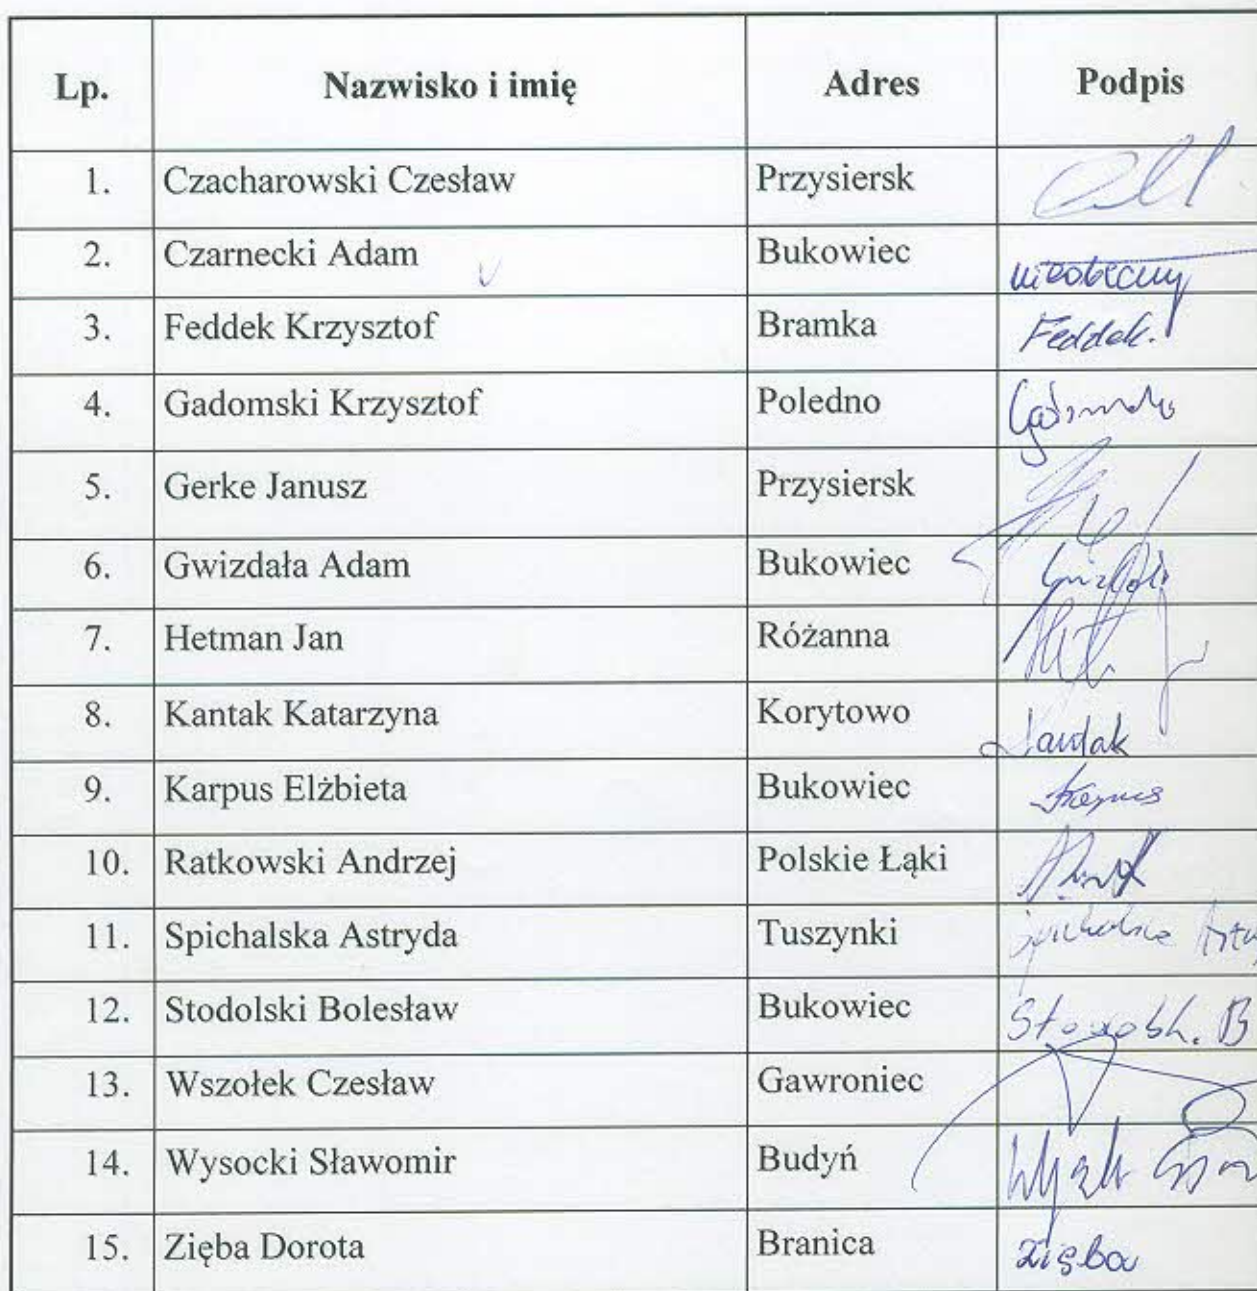 Lp. Nazwisko i imię Adres Podpis
1. Czacharowski Czesław Przysiersk
2. Czarnecki Adam Bukowiec nieobecny
3. Feddek Krzysztof Bramka Feddek.
4. Gadomski Krzysztof Poledno
5. Gerke Janusz Przysiersk
6. Gwizdała Adam Bukowiec
7. Hetman Jan Różanna
8. Kantak Katarzyna Korytowo Kantak
9. Karpus Elżbieta Bukowiec Karpus
10. Ratkowski Andrzej Polskie Łąki
11. Spichalska Astryda Tuszynki Spichalska
12. Stodolski Bolesław Bukowiec
13. Wszołek Czesław Gawroniec
14. Wysocki Sławomir Budyń
15. Zięba Dorota Branica Zięba